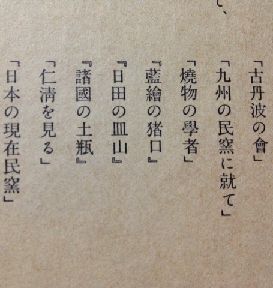 て、
「古丹波の會」
「九州の民窯に就て」
「燒物の學者」
『藍繪の猪口』
『日田の皿山』
『諸國の土瓶』
「仁淸を見る」
「日本の現在民窯」